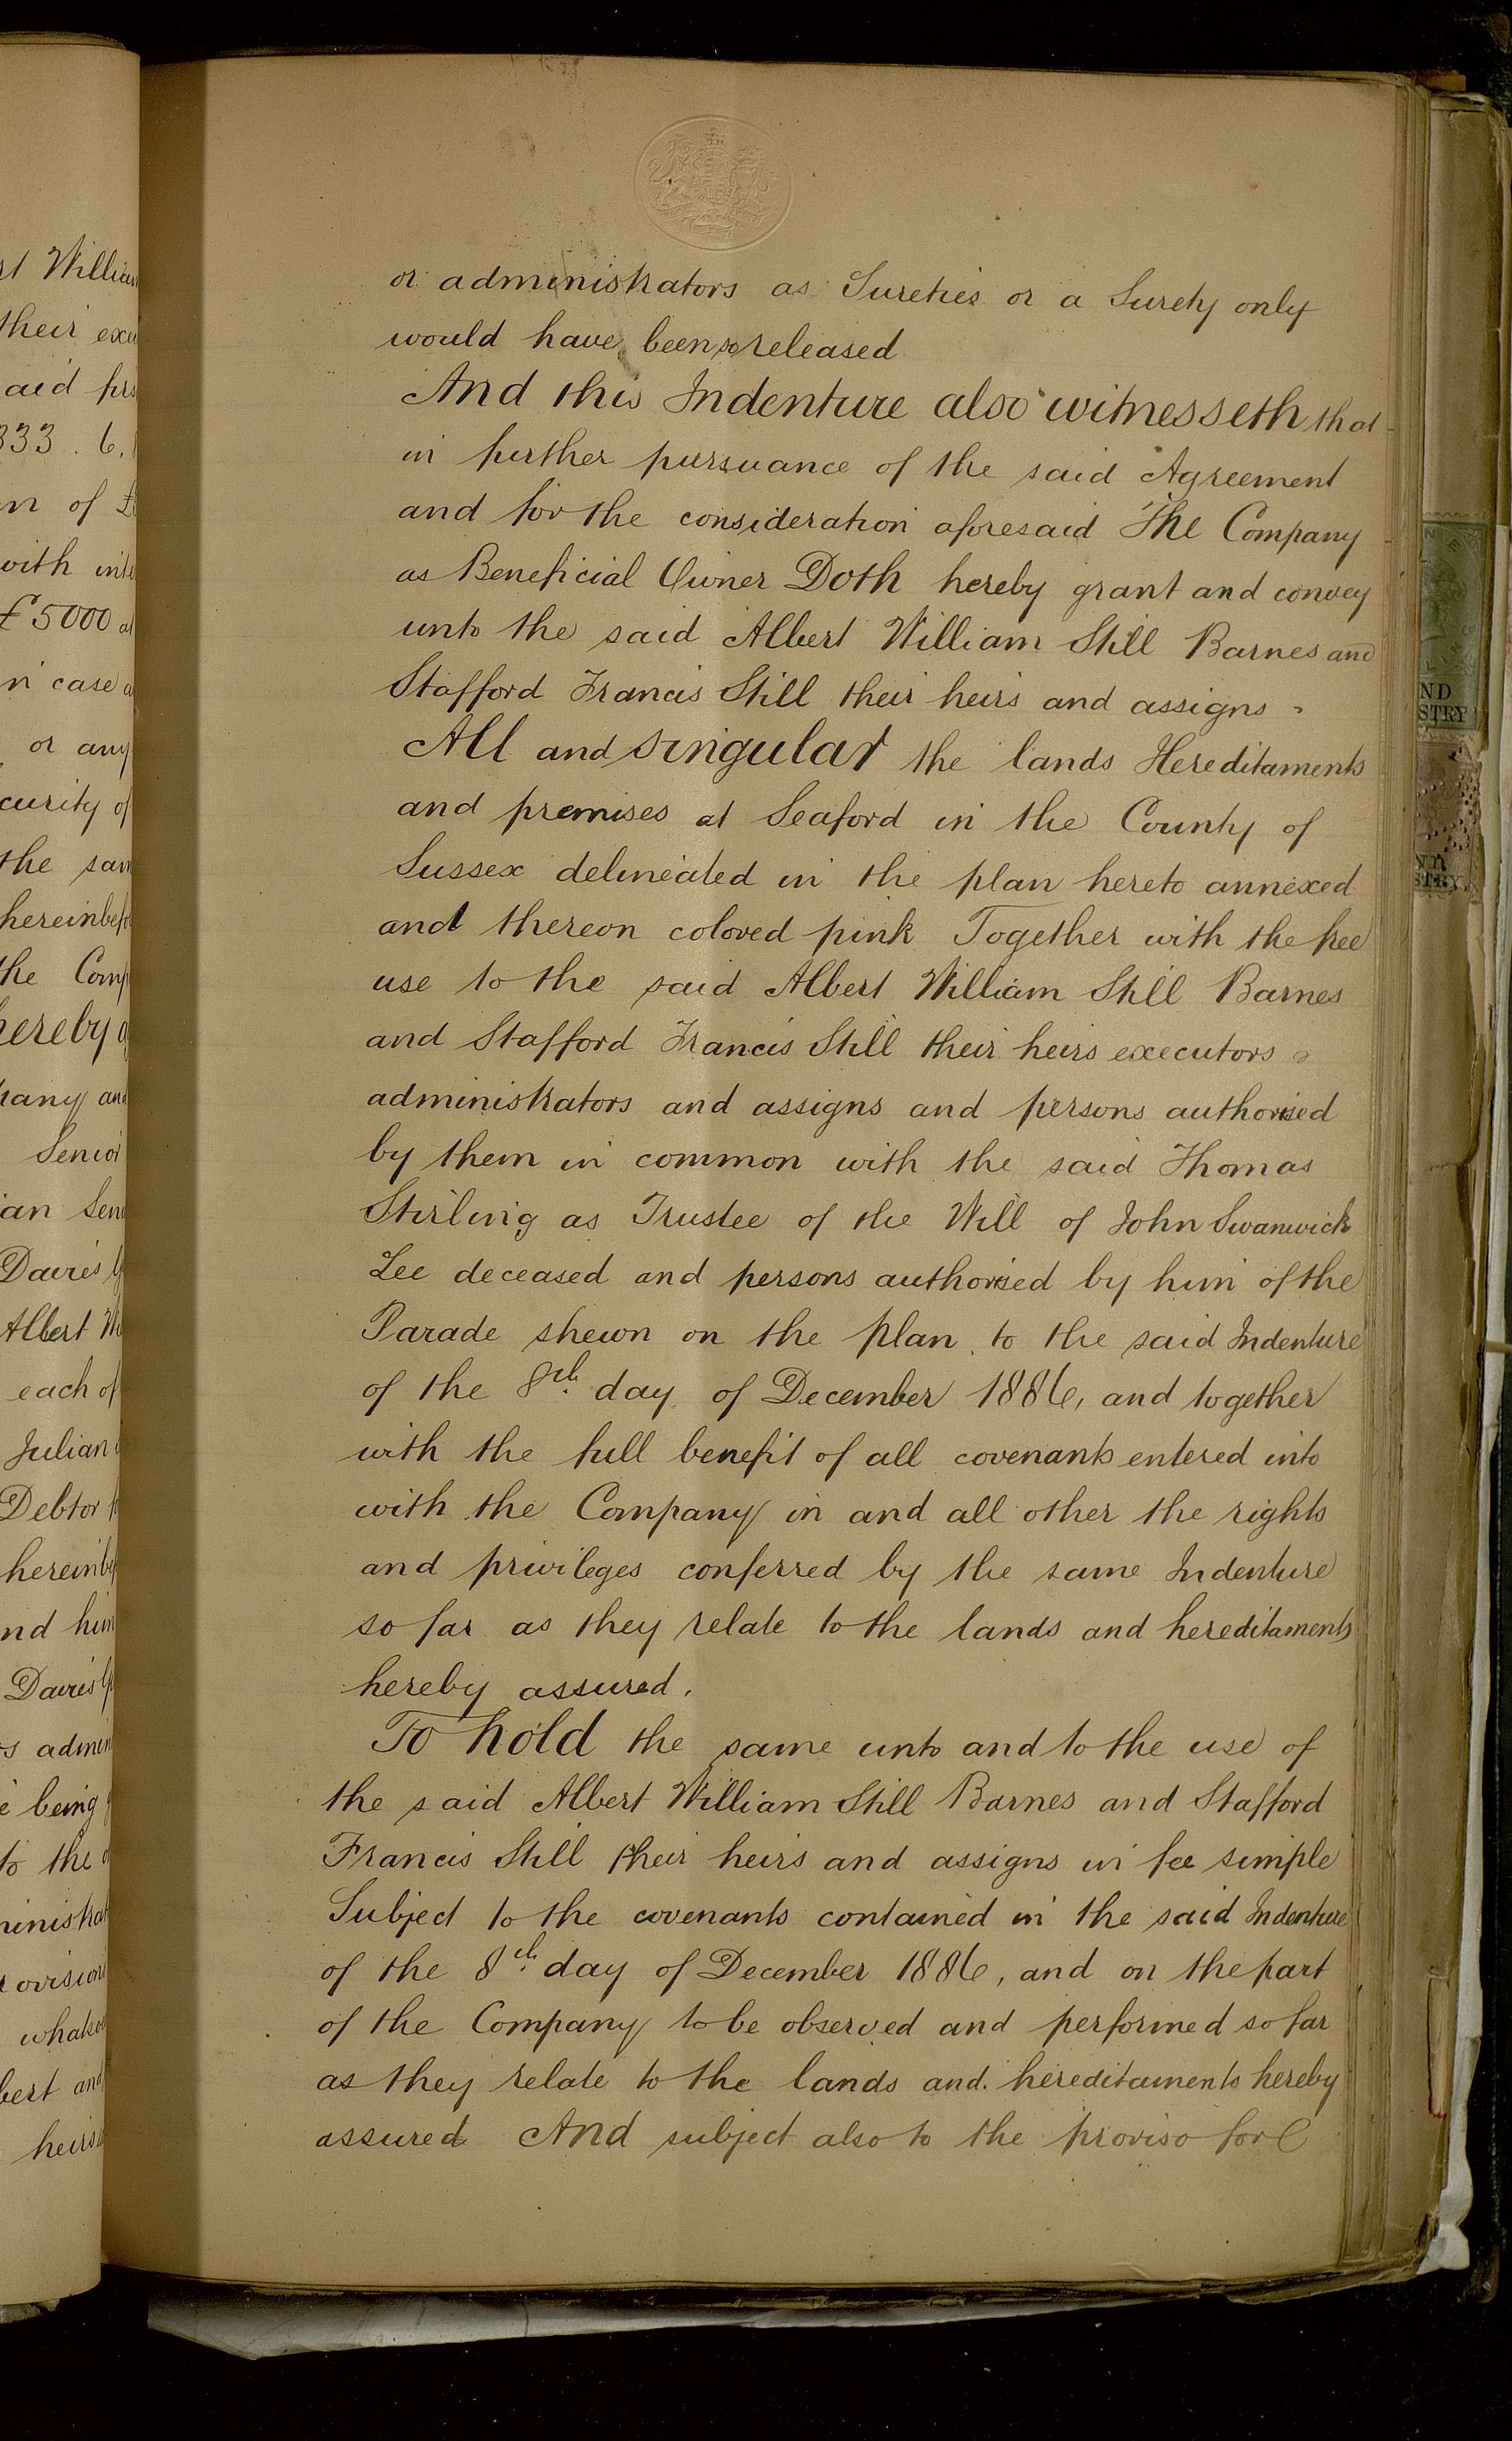 or administrators as Sureties or a Surety only
would have been so released
And this Indenture also witnesseth that
in further pursuance of the said Agreement
and for the consideration aforesaid The Company
as Beneficial Owner Doth hereby grant and convey
unto the said Albert William Still Barnes and
Stafford Francis Still their heirs and assigns
All and singular the lands Hereditaments
and premises at Seaford in the County of
Sussex delineated in the plan hereto annexed
and thereon colored pink Together with the free
use to the said Albert William Still Barnes
and Stafford Francis Still their heirs executors
administrators and assigns and persons authorised
by them in common with the said Thomas
Stirling as Trustee of the Will of John Swanwick
Lee deceased and persons authorised by him of the
Parade shewn on the plan to the said Indenture
of the 8th. day of December 1886, and together
with the full benefit of all covenants entered into
with the Company in and all other the rights
and privileges conferred by the same Indenture
so far as they relate to the lands and hereditaments
hereby assured.
To hold the same unto and to the use of
the said Albert William Still Barnes and Stafford
Francis Still their heirs and assigns in fee simple
Subject to the covenants contained in the said Indenture
of the 8th. day of December 1886, and on the part
of the Company to be observed and performed so far
as they relate to the lands and. hereditaments hereby
assured And subject also to the proviso for
rt William
their
aid
333. 6.
of £
with
£5000
in case
or any
curity of
the
the
hereby
Senior
Davies
Albert
each of
Julian
Debtor
nd him
Davies
being
to the
heirs
ND
STRY
STRY